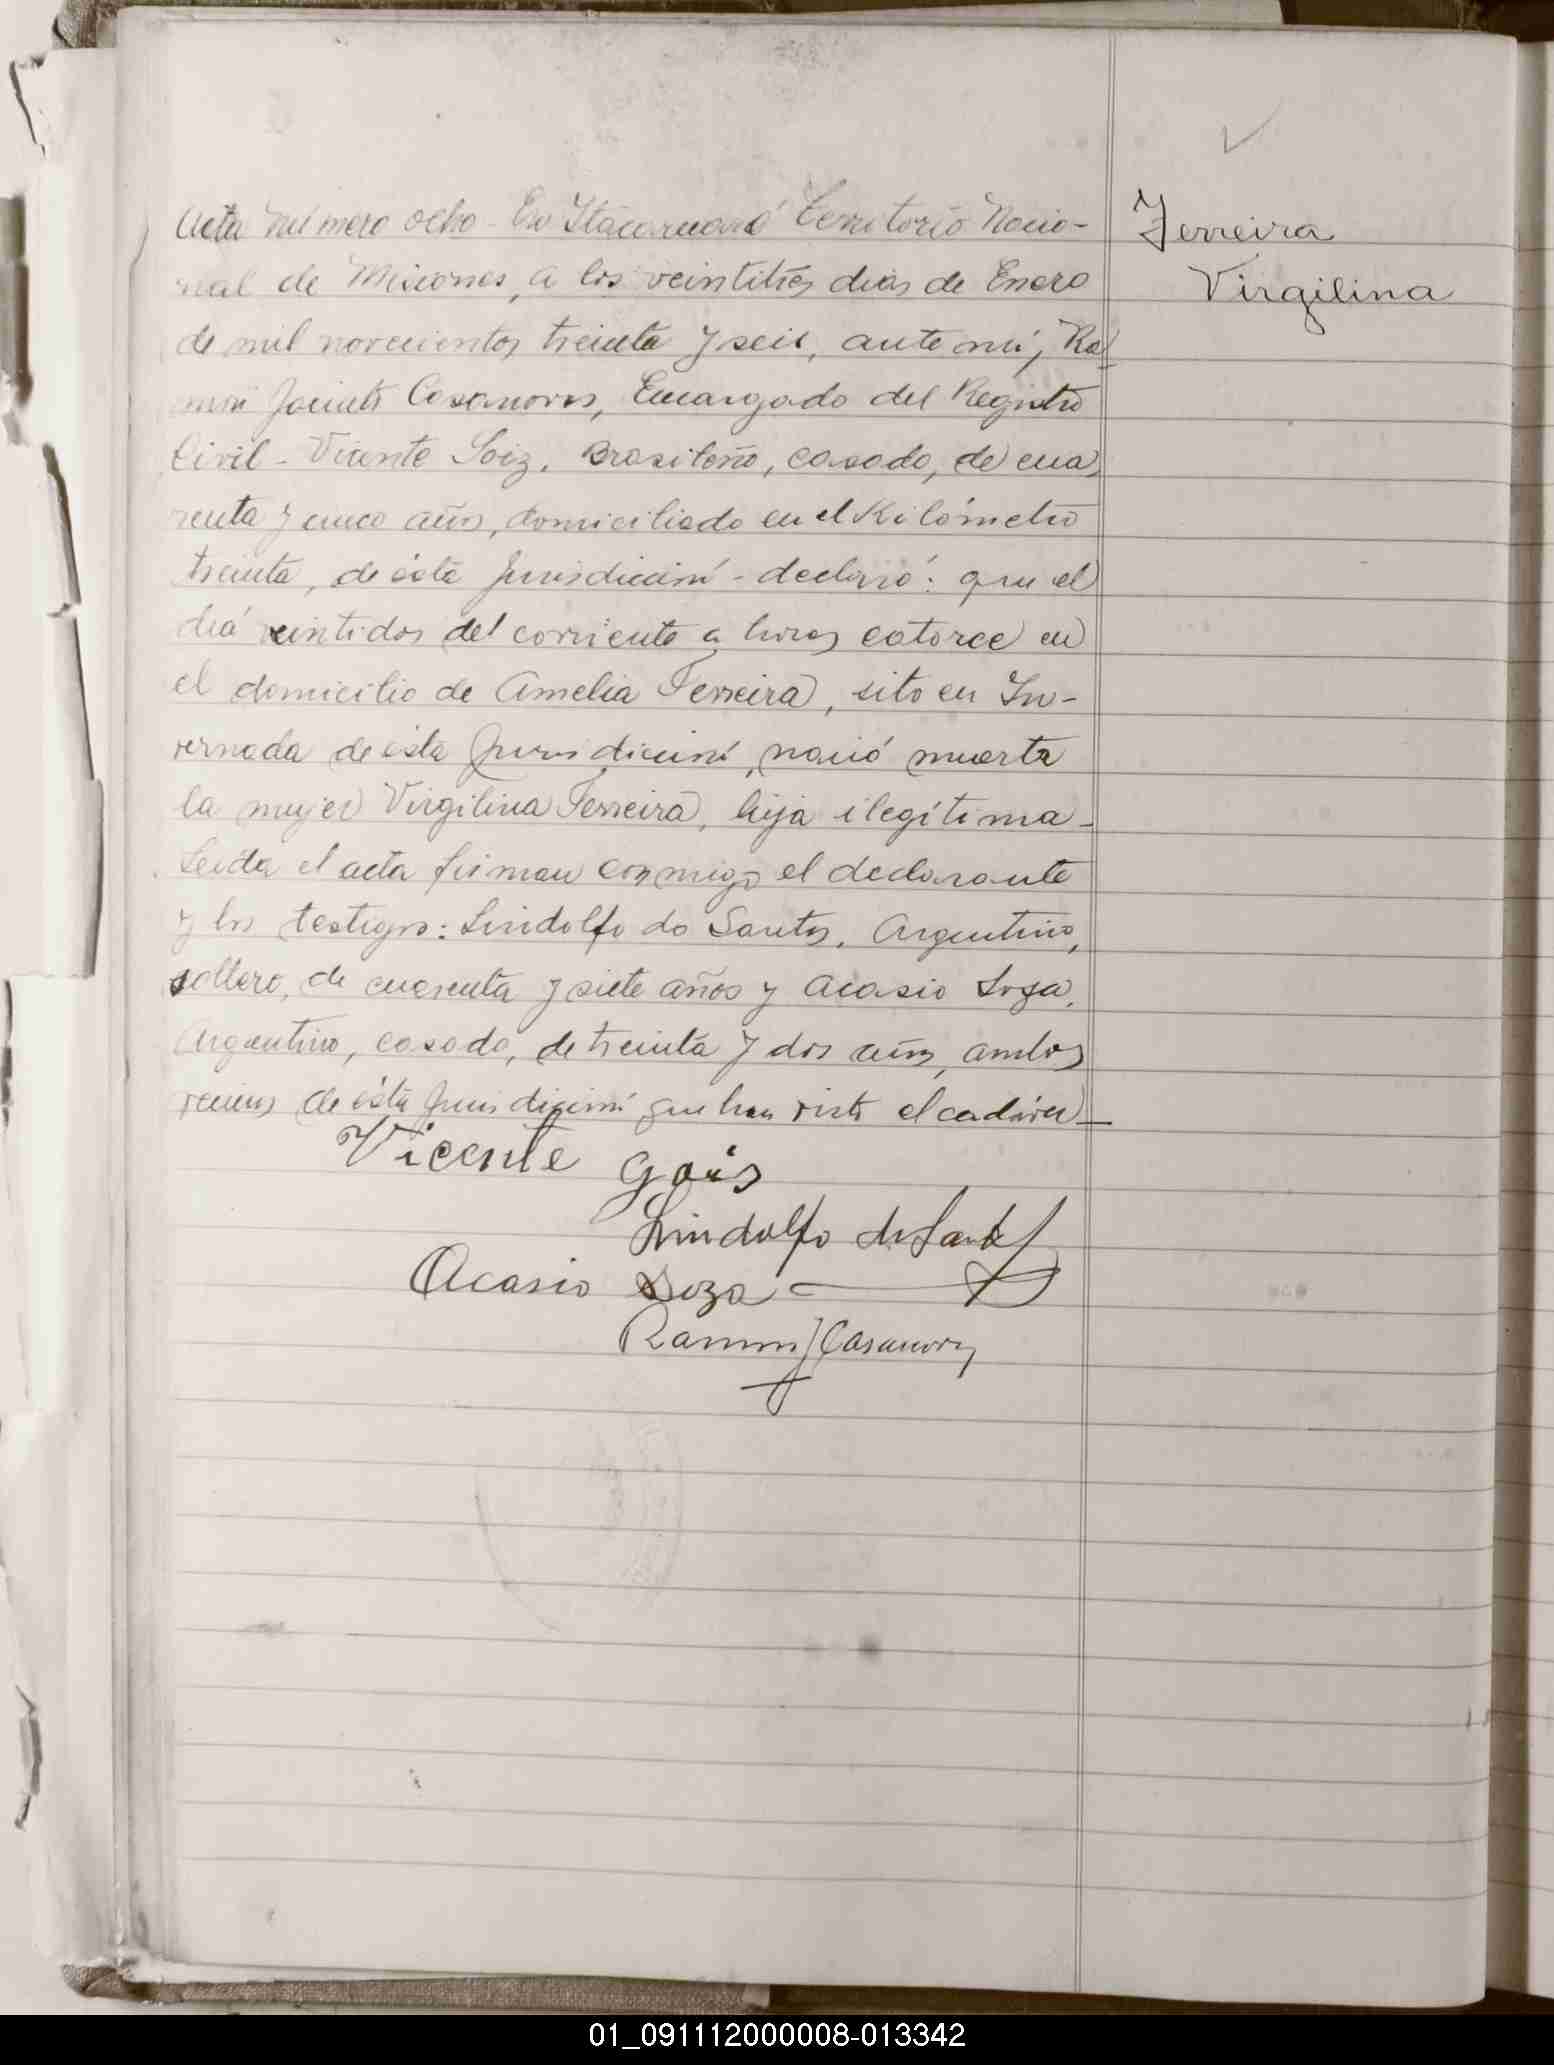 Acta número ocho - En Itacaruaré Territorio Nacio-
nal de Misiones, a los veintitrés dias de Enero
de mil novecientos treinta y seis, ante mí, Ra-
món Jacinto Casanovas, Encargado del Registro
Civil - Vicente Goiz, Brasileño, casado, de cua-
renta y cinco años, domiciliado en el Kilómetro
treinta, de ésta jurisdicción - declaró: que el
día veintidos del corriente a horas catorce en
el domicilio de Amelia Ferreira, sito en In-
vernada de ésta jurisdicción, nació muerta
la mujer Virgilina Ferreira, hija ilegítima -
Leida el acta firman conmigo el declarante
y los testigos: Lindolfo do Santos, Argentino,
soltero, de cuarenta y siete años y Acasio Soza,
Argentino, casado, de treinta y dos años, ambos
vecinos de ésta jurisdicción que han visto el cadáver -
Ferreira
Virgilina
Vicente Gois
Lindolfo do Santos
Acasio Soza
Ramon J Casanovas
01_091112000008-013342